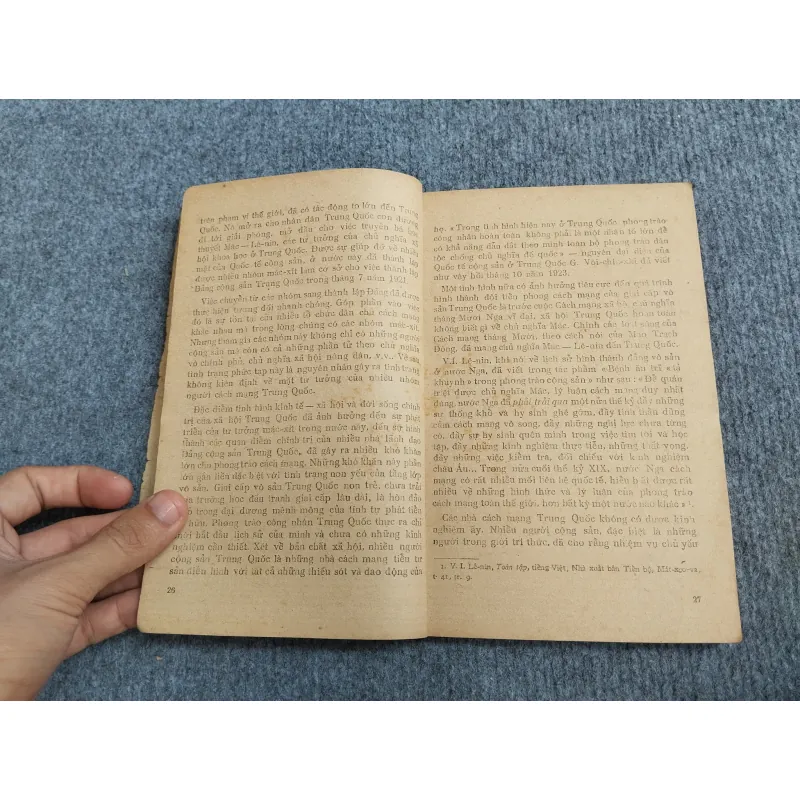 trên phạm vi thế giới, đã có tác động to lớn đến Trung
Quốc. Nó mở ra cho nhân dân Trung Quốc con đường
đi tới giải phóng, mở đầu cho việc truyền bá học
thuyết Mác — Lê-nin, các tư tưởng của chủ nghĩa xã
hội khoa học ở Trung Quốc. Được sự giúp đỡ về nhiều
mặt của Quốc tế cộng sản, ở nước này đã thành lập
được nhiều nhóm mác-xít làm cơ sở cho việc thành lập
Đảng cộng sản Trung Quốc trong tháng 7 năm 1921.
Việc chuyển từ các nhóm sang thành lập Đảng đã được
thực hiện tương đối nhanh chóng. Góp phần vào việc
đó là sự tồn tại của nhiều tổ chức dân chủ cách mạng
khác nhau mà trong lòng chúng có các nhóm mác-xít.
Nhưng tham gia các nhóm này không chỉ có những người
cộng sản mà còn có cả những phần tử theo chủ nghĩa
vô chính phủ, chủ nghĩa xã hội nông dân, v.v.. Về sau
tình trạng phức tạp này là nguyên nhân gây ra tình trạng
không kiên định về mặt tư tưởng của nhiều nhóm
người cách mạng Trung Quốc.
Đặc điểm tình hình kinh tế — xã hội và đời sống chính
trị của xã hội Trung Quốc đã ảnh hưởng đến sự phát
triển của tư tưởng mác-xít trong nước này, đến sự hình
thành các quan điểm chính trị của nhiều nhà lãnh đạo
Đảng cộng sản Trung Quốc, đã gây ra nhiều khó khăn
lớn của phong trào cách mạng. Những khó khăn này phần
lớn gắn liền đặc biệt với tình trạng non yếu của tầng lớp
vô sản. Giai cấp vô sản Trung Quốc non trẻ, chưa trải
qua trường học đấu tranh giai cấp lâu dài, là hòn đảo
nhỏ trong đại dương mênh mông của tính tự phát tiểu
tư sản. Phong trào công nhân Trung Quốc thực ra chỉ
mới bắt đầu lịch sử của mình và chưa có những kinh
nghiệm cần thiết. Xét về bản chất xã hội, nhiều người
cộng sản Trung Quốc là những nhà cách mạng tiểu tư
sản điển hình với tất cả những thiếu sót và dao động của
26
họ. «Trong tình hình hiện nay ở Trung Quốc, phong trào
công nhân hoàn toàn không phải là một nhân tố lớn để
có khả năng dẫn dắt theo mình toàn bộ phong trào dân
tộc chống chủ nghĩa đế quốc» — nguyên đại diện của
Quốc tế cộng sản ở Trung Quốc G. Vôi-chin-xki đã viết
như vậy hồi tháng 10 năm 1923.
Một tình hình nữa có ảnh hưởng tiêu cực đến quá trình
hình thành đội tiền phong cách mạng của giai cấp vô
sản Trung Quốc là trước cuộc Cách mạng xã hội chủ nghĩa
tháng Mười Nga vĩ đại, xã hội Trung Quốc hoàn toàn
không biết gì về chủ nghĩa Mác. Chính các loạt súng của
Cách mạng tháng Mười, theo cách nói của Mao Trạch
Đông, đã mang chủ nghĩa Mác — Lê-nin đến Trung Quốc.
V.I. Lê-nin, khi nói về lịch sử hình thành đảng vô sản
ở nước Nga, đã viết trong tác phẩm «Bệnh ấu trĩ «tả
khuynh» trong phong trào cộng sản» như sau: «Để quán
triệt được chủ nghĩa Mác, lý luận cách mạng duy nhất
đúng, nước Nga đã phải trải qua một nửa thế kỷ đầy những
sự thống khổ và hy sinh ghê gớm, đầy tinh thần dũng
cảm cách mạng vô song, đầy những nghị lực chưa từng
có, đầy sự hy sinh quên mình trong việc tìm tòi và học
tập, đầy những kinh nghiệm thực tiễn, những thất vọng,
đầy những việc kiểm tra, đối chiếu với kinh nghiệm
châu Âu... Trong nửa cuối thế kỷ XIX, nước Nga cách
mạng có rất nhiều mối liên hệ quốc tế, hiểu biết được rất
nhiều về những hình thức và lý luận của phong trào
cách mạng toàn thế giới, hơn bất kỳ một nước nào khác» ¹.
Các nhà cách mạng Trung Quốc không có được kinh
nghiệm ấy. Nhiều người cộng sản, đặc biệt là những
người trong giới trí thức, đã cho rằng nhiệm vụ chủ yếu
1. V. I. Lê-nin, Toàn tập, tiếng Việt, Nhà xuất bản Tiến bộ, Mát-xcơ-va,
t. 41, tr. 9.
27